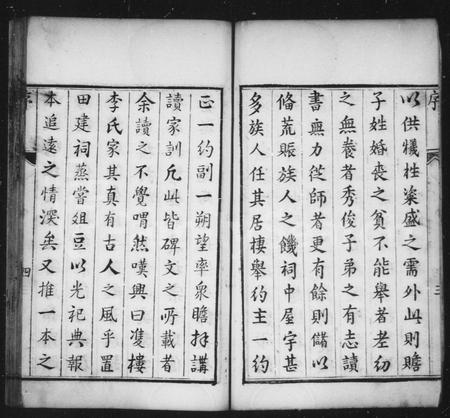 序
以供犠牲粢盛之需外此則贍
子姓婚喪之貧不能舉者老幼
之無養者秀俊子弟之有志讀
書無力從師者更有餘則儲以
偹荒賑族人之饑祠中屋字甚
多族人任其居棲舉約主一約
三
正一約副一朔望率衆贍拜講
讀家訓凡此皆碑文之所載者
余讀之不覺喟然嘆興曰雙樓
李氏家其真有古人之風乎置
田建祠蒸嘗俎豆以光祀典報
本追遠之情深矣又推一本之
四